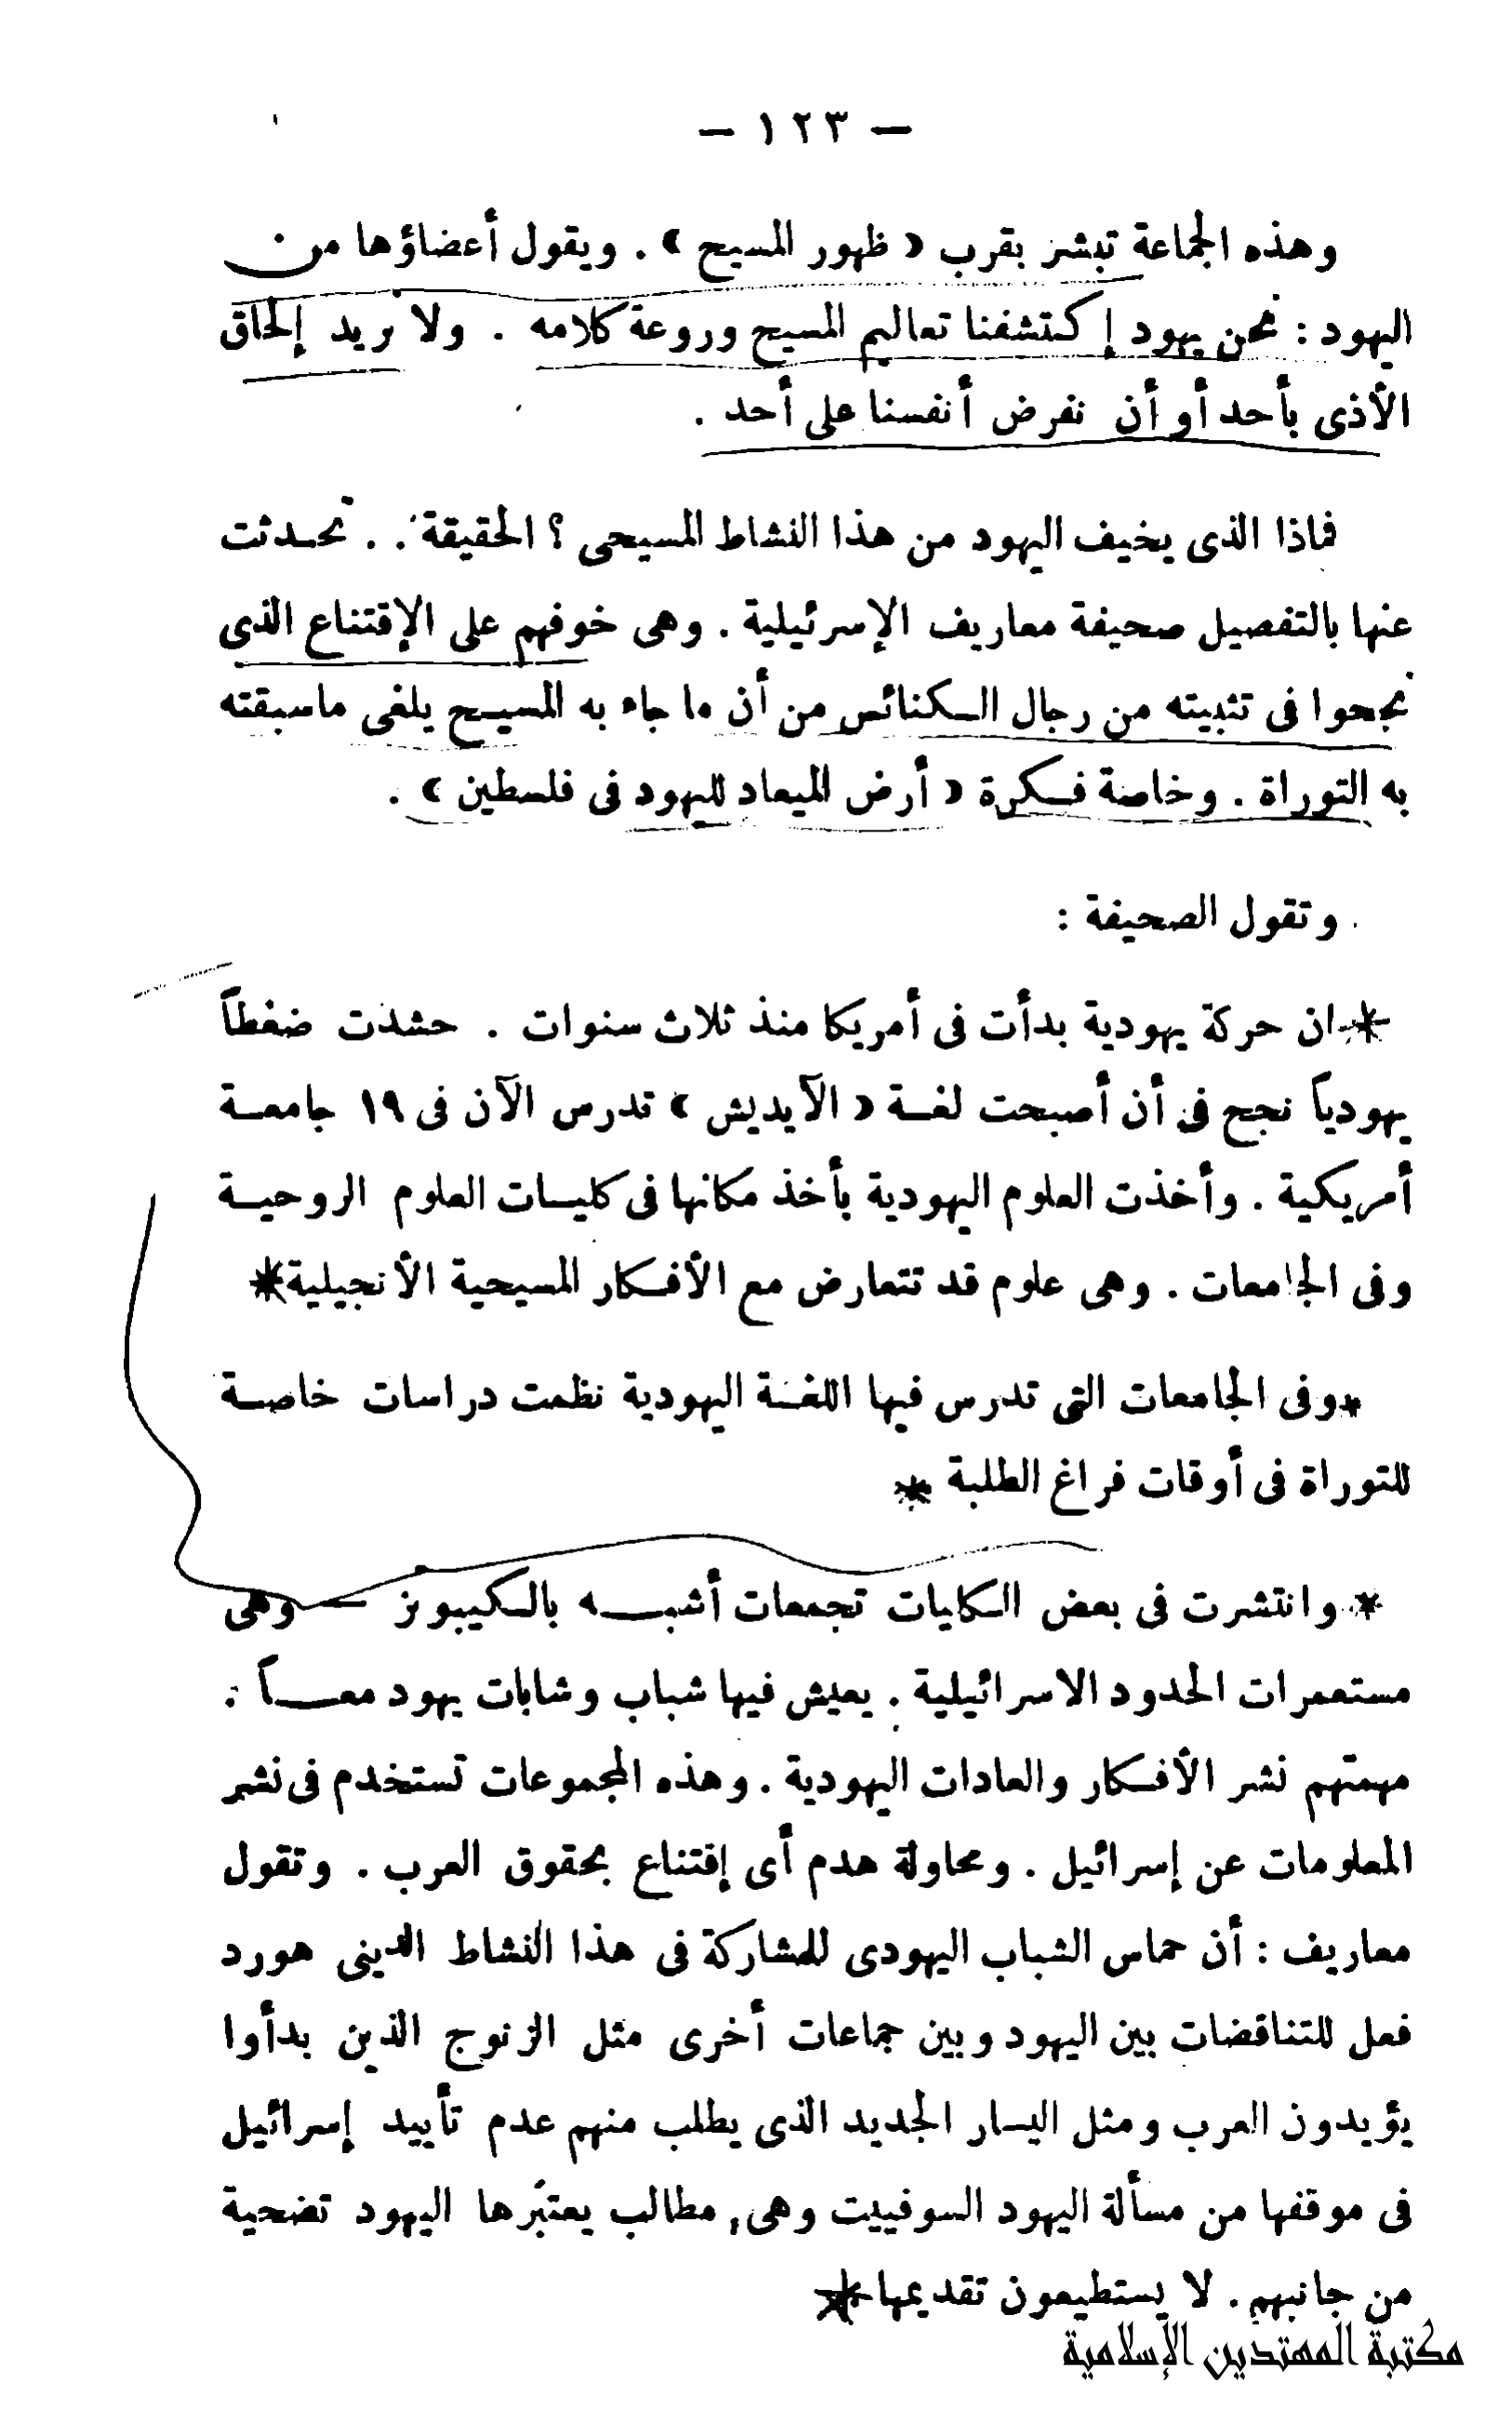 — ١٢٣ —
وهذه الجماعة تبشر بقرب « ظهور المسيح » . ويقول أعضاؤها من
اليهود : نحن يهود إكتشفنا تعاليم المسيح وروعة كلامه . ولا نريد إلحاق
الأذى بأحد أو أن نفرض أنفسنا على أحد .
فماذا الذى يخيف اليهود من هذا النشاط المسيحى ؟ الحقيقة . . تحدثت
عنها بالتفصيل صحيفة معاريف الإسرئيلية . وهى خوفهم على الإقتناع الذى
نجحوا فى تثبيته من رجال الكنائس من أن ما جاء به المسيح يلغى ماسبقته
به التوراة . وخاصة فكرة « أرض الميعاد لليهود فى فلسطين » .
وتقول الصحيفة :
* ان حركة يهودية بدأت فى أمريكا منذ ثلاث سنوات . حشدت ضغطاً
يهودياً نجح فى أن أصبحت لغة « الآيديش » تدرس الآن فى ١٩ جامعة
أمريكية . وأخذت العلوم اليهودية بأخذ مكانها فى كليات العلوم الروحية
وفى الجامعات . وهى علوم قد تتعارض مع الأفكار المسيحية الأنجيلية *
* وفى الجامعات التى تدرس فيها اللغة اليهودية نظمت دراسات خاصة
للتوراة فى أوقات فراغ الطلبة *
* وانتشرت فى بعض الكليات تجمعات أشبه بالكيبوتز — وهى
مستعمرات الحدود الاسرائيلية . يعيش فيها شباب وشابات يهود معاً :
مهمتهم نشر الأفكار والعادات اليهودية . وهذه المجموعات تستخدم فى نشر
المعلومات عن إسرائيل . ومحاولة هدم أى إقتناع بحقوق العرب . وتقول
معاريف : أن حماس الشباب اليهودى للمشاركة فى هذا النشاط الدينى هورد
فعل للتناقضات بين اليهود وبين جماعات أخرى مثل الزنوج الذين بدأوا
يؤيدون العرب ومثل اليسار الجديد الذى يطلب منهم عدم تأييد إسرائيل
فى موقفها من مسألة اليهود السوفييت وهى, مطالب يعتبرها اليهود تضحية
من جانبهم . لا يستطيعون تقديمها *
مكتبة المهتدين الإسلامية